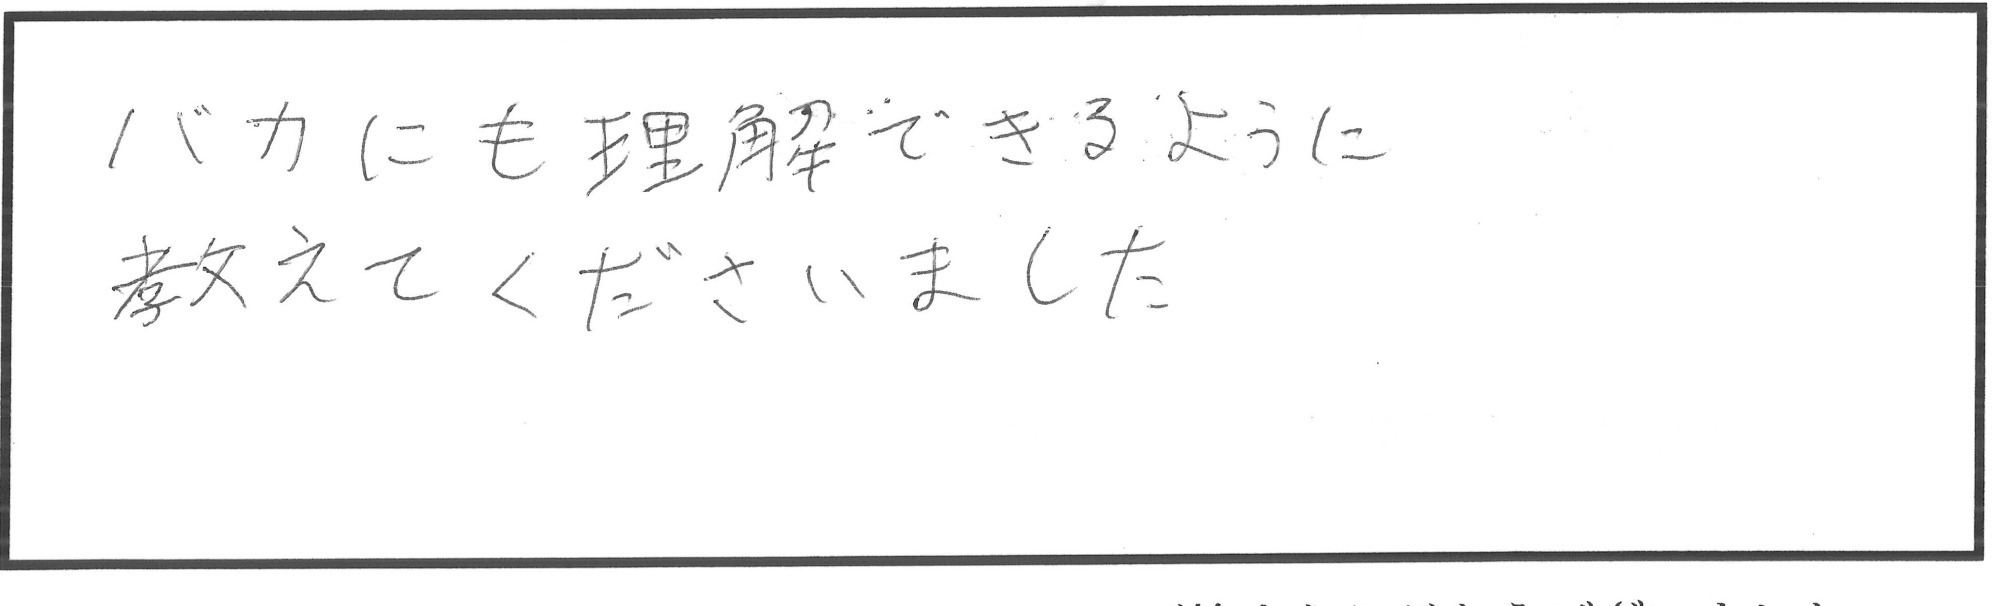 バカにも理解できるように
教えてくださいました